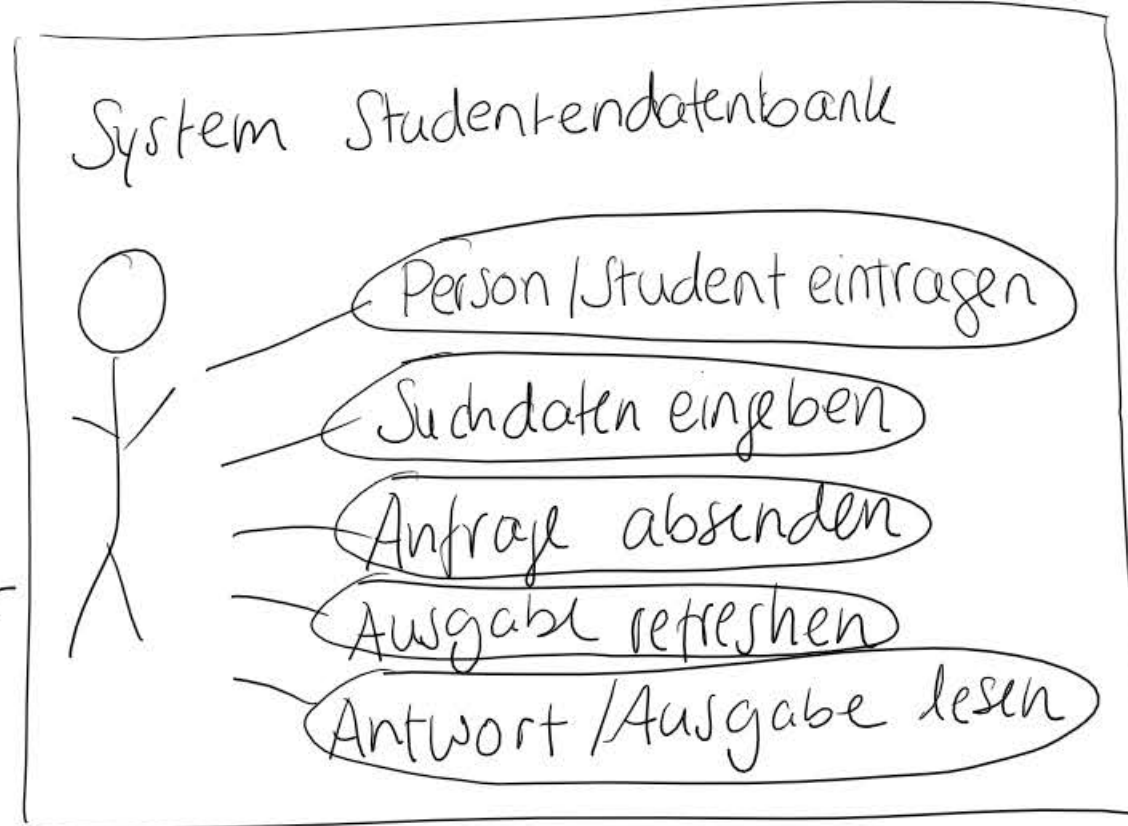 System Studentendatenbank
Person/Student eintragen
Suchdaten eingeben
Anfrage absenden
Ausgabe refreshen
Antwort/Ausgabe lesen